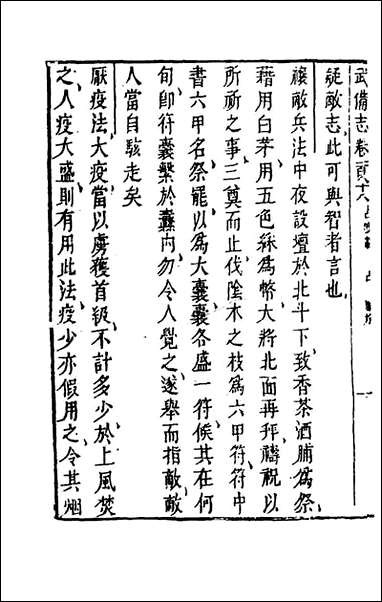 武備志卷一百八十六 占
疑敵志此可與智者言也
禳敵兵法中夜設壇於北斗下致香茶酒脯爲祭
藉用白茅用五色綵爲幣大將北面再拜禱祝以
所祈之事三奠而止伐陰木之枝爲六甲符符中
書六甲名祭罷以爲大囊囊各盛一符候其在何
旬卽符囊繫於纛內勿令人覺之遂舉而指敵敵
人當自駭走矣
厭疫法大疫當以虜獲首級不計多少於上風焚
之人疫大盛則有用此法疫少亦假用之令其烟